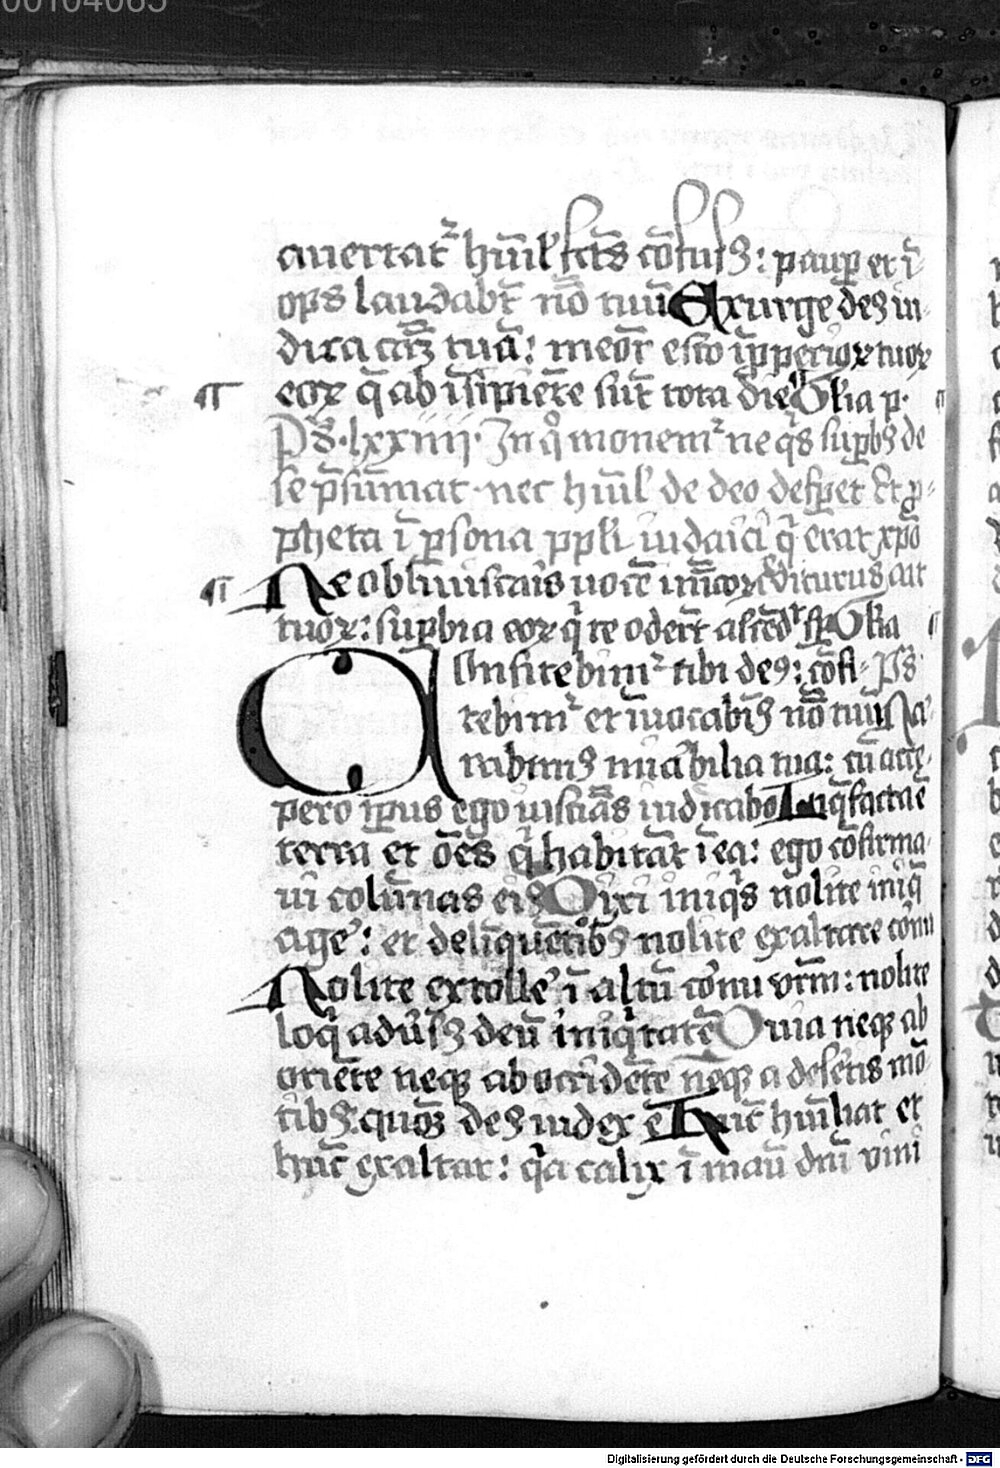 00104065
auertat᷑ hūil' fcūs cōfusꝰ: paup̱ et ī-
ops laudabt̄ nō tuū Exurge deꝰ iu-
dica cāꝫ tuā: meōr esto īp̱periorꝝ tuorꝝ
¶ eorꝝ q̄ ab īsipiēte sūt tota die Gl̄ia p.
Ps̄. lxxiiii. In qͦ monem᷑ ne qͥs sup̱bꝰ de
se p̄sūmat nec hūil' de deo desp̱et Et ꝓ-
pheta ī p̱sona pp̄li iudaici qͥ erat xp̄o
¶ Ne obliuiscaīs uocē inīcorꝝ crediturus ait
tuorꝝ: sup̱bia eorꝝ qͥ te oderūt ascēdit sp̱ Gl̄ia
Confitebim᷑ tibi deꝰ: cōfi- Ps̄
tebim᷑ et īuocabimꝰ nōm tuū Na-
rabimꝰ mirabilia tua: cū acce-
pero tp̱us ego iusticias iudicabo Liq̄facta ē
terra et oēs qͥ habitāt ī ea: ego cōfirma-
ui colūnas eiꝰ Dixi iniqͥs nolite iniq̄
age': et delīquētibꝰ nolite exaltare cornu
Nolite extolle' ī altū cornu vrm̄: nolite
loqͥ aduersꝰ deū iniqͥtatē Quia neqꝫ ab
oriēte neqꝫ ab occidēte neqꝫ a desertis mō-
tibꝰ: quōꝫ deꝰ iudex ē Hūc hūiliat et
hūc exaltat: qͥa calix ī manu dn̄i vini
Digitalisierung gefördert durch die Deutsche Forschungsgemeinschaft - DFG